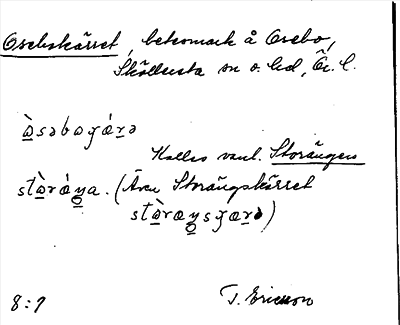 Osebokärret, betesmark å Osebo,
Sköllersta sn o. hd, Ör. l.
ə̀səboɟǽrə
Kallas vanl. Storängen
stòrǽŋa. (Även Storängskärret
stòræŋsɟærə)
8:7
T. Ericsson